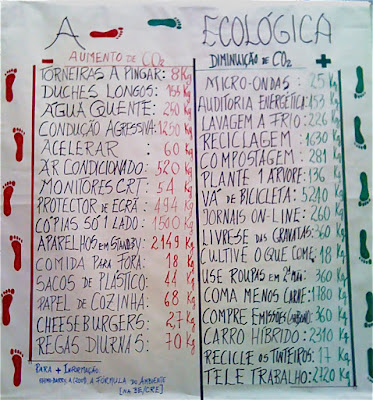 A ECOLÓGICA
-
AUMENTO DE CO2
TORNEIRAS A PINGAR: 8 Kg
DUCHES LONGOS: Kg
ÁGUA QUENTE: 250 Kg
CONDUÇÃO AGRESSIVA: 1250 Kg
ACELERAR : 60 Kg
AR CONDICIONADO: 520 Kg
MONITORES CRT: 54 Kg
PROTECTOR DE ECRÃ: 494 Kg
CÓPIAS SÓ 1 LADO: 1500 Kg
APARELHOS EM STANDBY: 2149 Kg
COMIDA PARA FORA: 18 Kg
SACOS DE PLÁSTICO: 44 Kg
PAPEL DE COZINHA: 68 Kg
CHEESEBURGERS: 27 Kg
REGAS DIURNAS: 70 Kg
PARA + INFORMAÇÃO
A FÓRMULA DO AMBIENTE
[NA BE/CRE]
DIMINUIÇÃO DE CO2
+
MICRO-ONDAS : 25 Kg
AUDITORIA ENERGÉTICA: 153 Kg
LAVAGEM A FRIO: 226 Kg
RECICLAGEM : 1030 Kg
COMPOSTAGEM : 281 Kg
PLANTE 1 ÁRVORE: 136 Kg
VÁ DE BICICLETA: 5210 Kg
JORNAIS ON-LINE: 260 Kg
LIVRE-SE DAS GRAVATAS: 360 Kg
CULTIVE O QUE COME: 18 Kg
USE ROUPAS EM 2ª MÃO: 360 Kg
COMA MENOS CARNE: 1780 Kg
COMPRE EMISSÕES (CARBONO): 360 Kg
CARRO HÍBRIDO: 2310 Kg
RECICLE OS TINTEIROS: 17 Kg
TELE TRABALHO: 2720 Kg